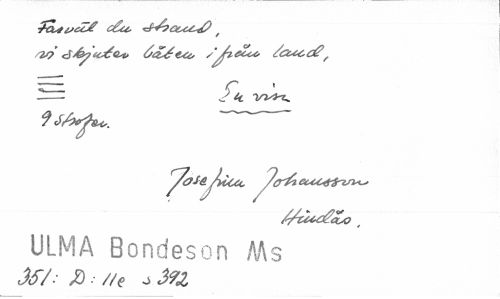 Farväl du strand,
vi skjuter båten i från land,
En visa
9 strofer.
Josefina Johansson
Hindås.
ULMA Bondeson Ms
351: D: 11e s 392